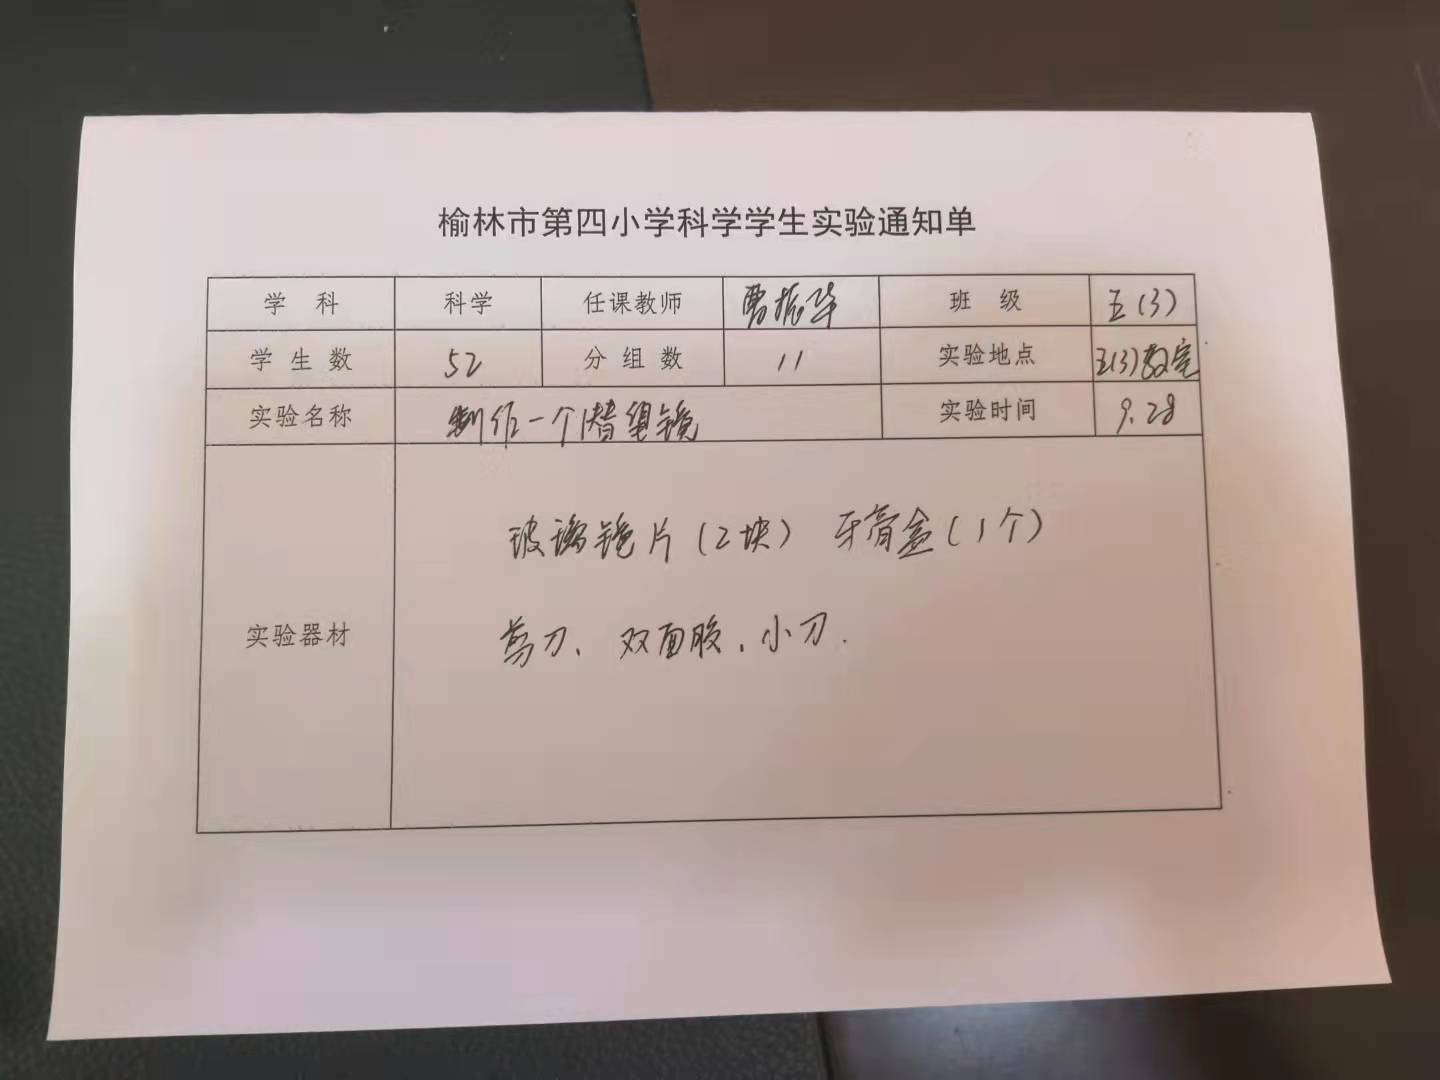 榆林市第四小学科学学生实验通知单
学 科 科学 任课教师 曹振华 班 级 五(3)
学 生 数 52 分 组 数 11 实验地点 五(3)教室
实验名称 制作一个潜望镜 实验时间 9.28
实验器材 玻璃镜片(2块) 牙膏盒(1个)
剪刀、双面胶、小刀.